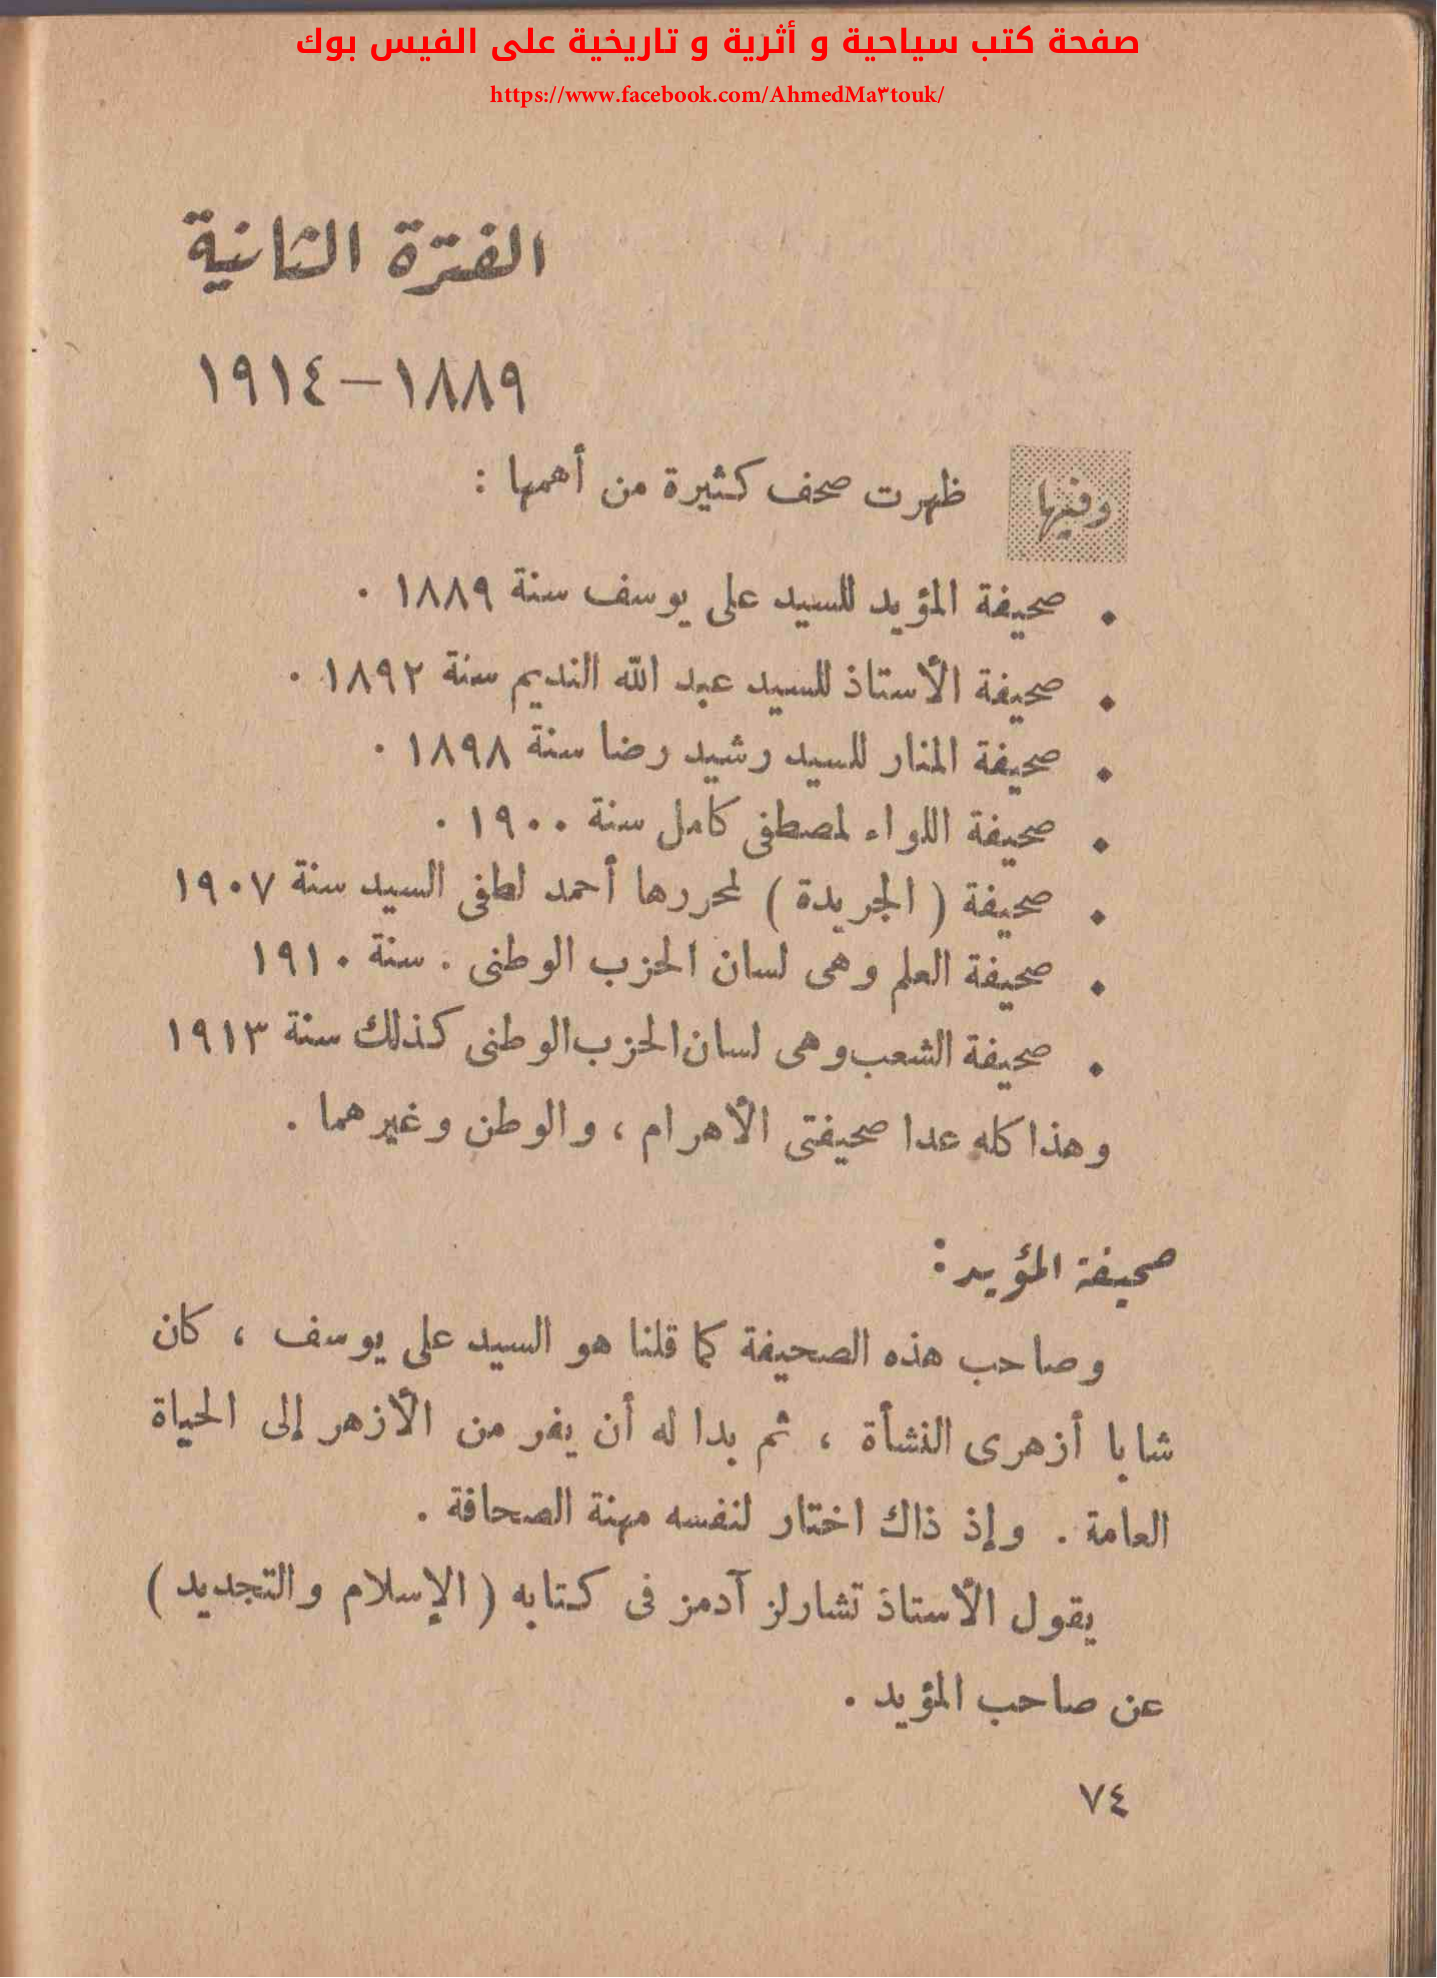 صفحة كتب سياحية و أثرية و تاريخية على الفيس بوك
https://www.facebook.com/AhmedMa٣touk/
الفترة الثانية
١٨٨٩ – ١٩١٤
وفيها ظهرت صحف كثيرة من أهمها :
• صحيفة المؤيد للسيد على يوسف سنة ١٨٨٩ .
• صحيفة الأستاذ للسيد عبد الله النديم سنة ١٨٩٢ .
• صحيفة المنار للسيد رشيد رضا سنة ١٨٩٨ .
• صحيفة اللواء لمصطفى كامل سنة ١٩٠٠ .
• صحيفة ( الجريدة ) لمحررها أحمد لطفى السيد سنة ١٩٠٧
• صحيفة العلم وهى لسان الحزب الوطنى . سنة ١٩١٠
• صحيفة الشعب وهى لسان الحزب الوطنى كذلك سنة ١٩١٣
وهذا كله عدا صحيفتى الأهرام ، والوطن وغيرهما .
صحيفة المؤيد :
وصاحب هذه الصحيفة كما قلنا هو السيد على يوسف ، كان
شابا أزهرى النشأة ، ثم بدا له أن يفر من الأزهر إلى الحياة
العامة . وإذ ذاك اختار لنفسه مهنة الصحافة .
يقول الأستاذ تشارلز آدمز فى كتابه ( الإسلام والتجديد )
عن صاحب المؤيد .
٧٤